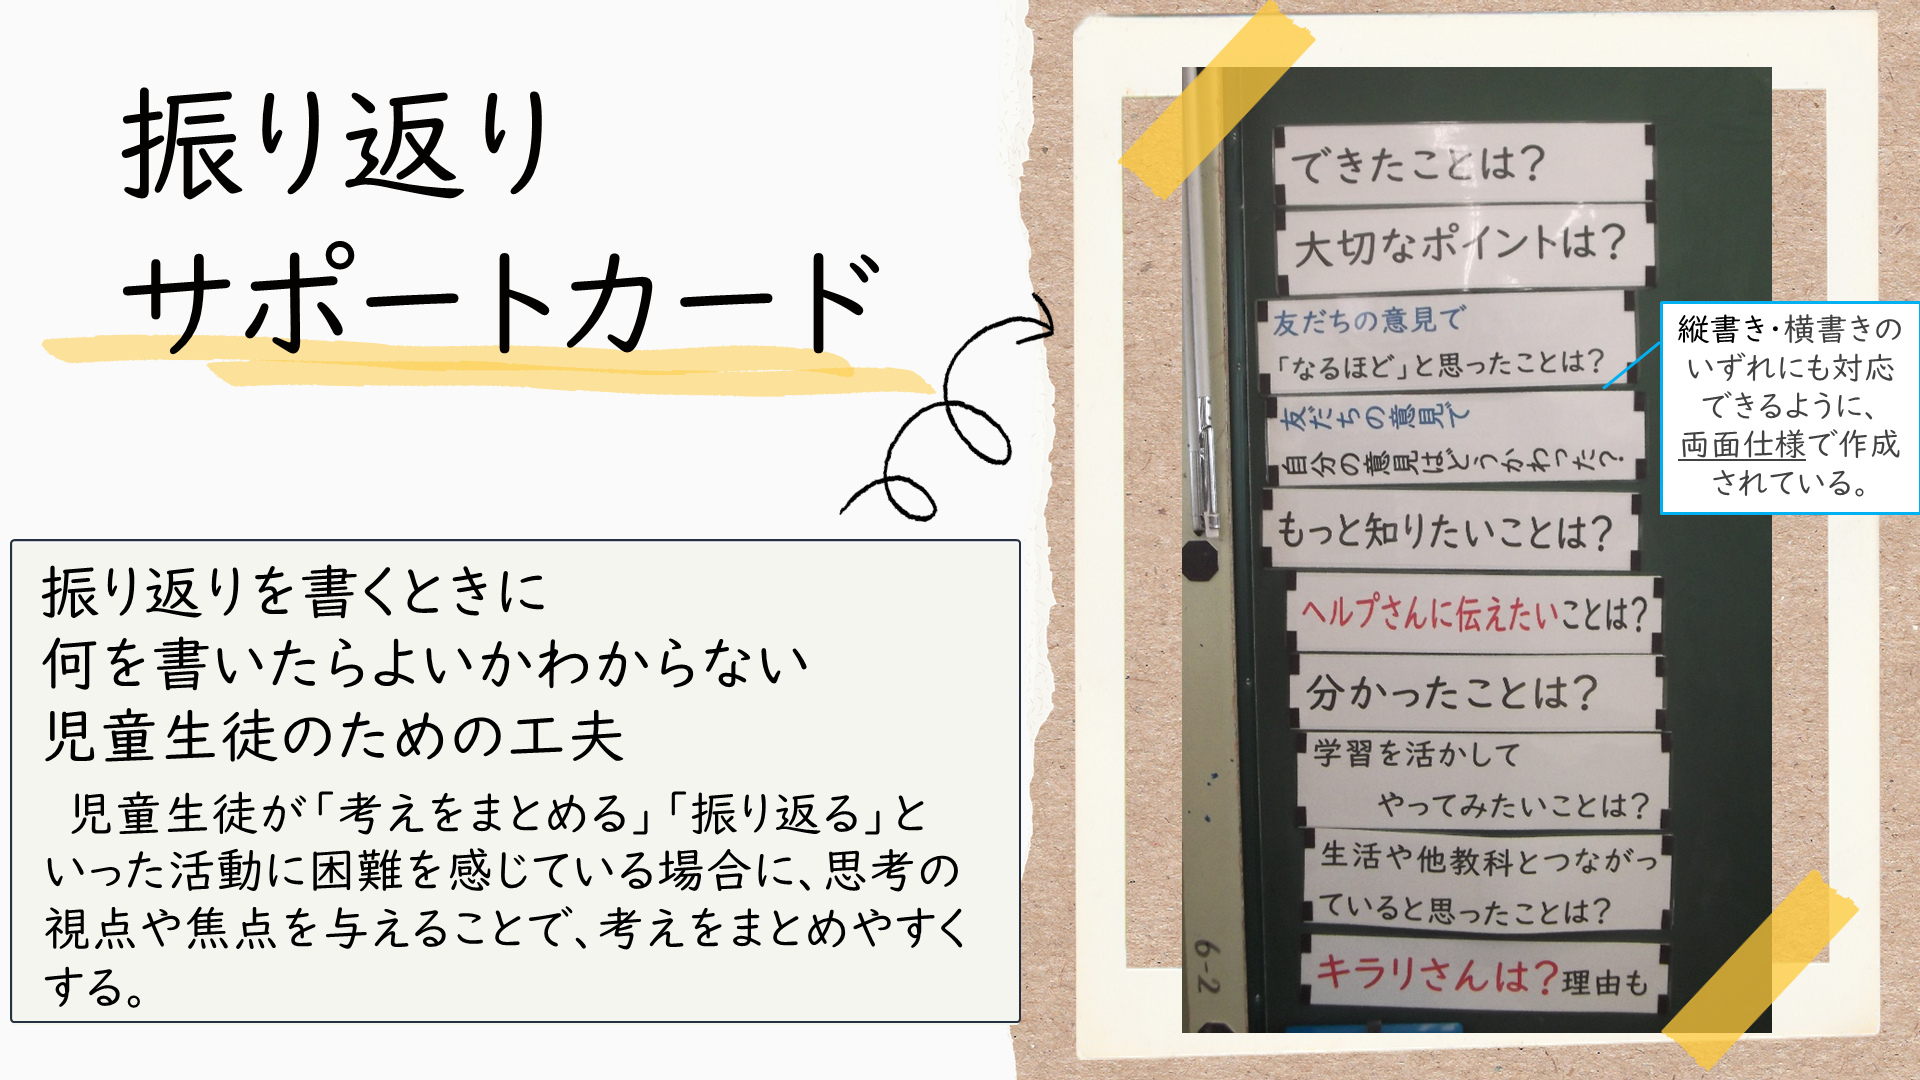 振り返り
サポートカード
振り返りを書くときに
何を書いたらよいかわからない
児童生徒のための工夫
児童生徒が「考えをまとめる」「振り返る」と
いった活動に困難を感じている場合に、思考の
視点や焦点を与えることで、考えをまとめやすく
する。
できたことは？
大切なポイントは？
友だちの意見で
「なるほど」と思ったことは？
友だちの意見で
自分の意見はどうかわった？
もっと知りたいことは？
ヘルプさんに伝えたいことは？
分かったことは？
学習を活かして
やってみたいことは？
生活や他教科とつながっ
ていると思ったことは？
キラリさんは？理由も
6-2
縦書き・横書きの
いずれにも対応
できるように、
両面仕様で作成
されている。